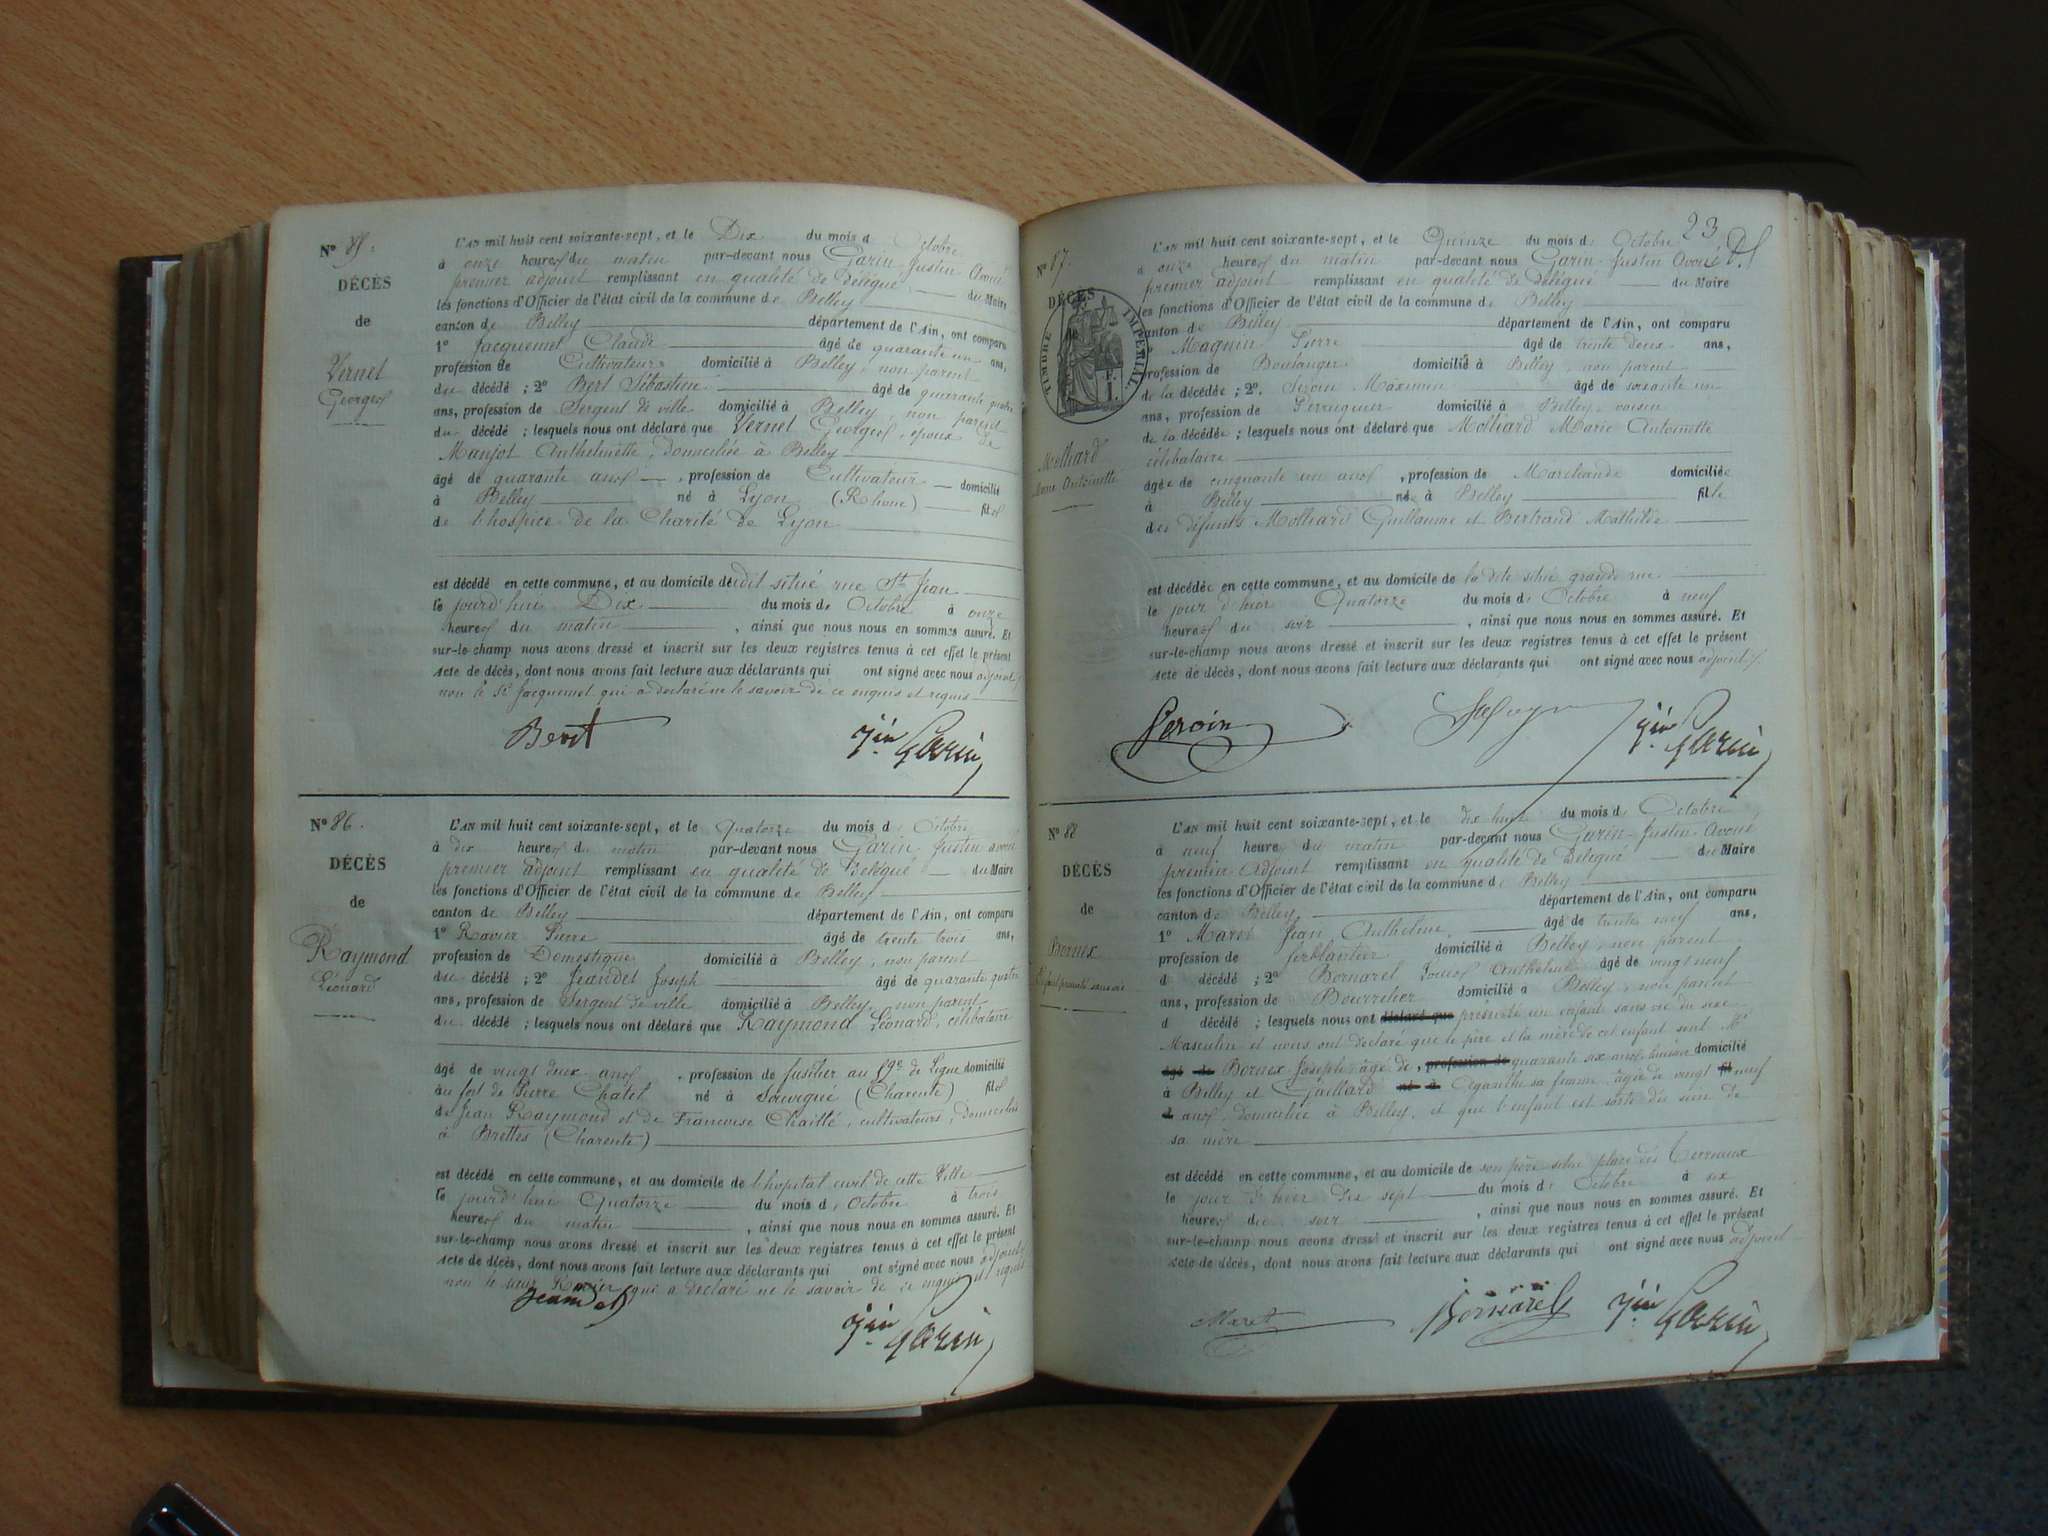 N° 85.
DÉCÈS
de
Vernet
Georges
L'AN mil huit cent soixante-sept, et le Dix du mois d'Octobre
à onze heures du matin par-devant nous Garin Justin Avoué
premier adjoint remplissant en qualité de Délégué du Maire
les fonctions d'Officier de l'état civil de la commune de Belley
canton de Belley département de l'Ain, ont comparu
1° Jacquemet Claude âgé de quarante un ans,
profession de Cultivateur domicilié à Belley, non parent
du décédé ; 2° Bert Sébastien âgé de quarante quatre
ans, profession de Sergent de ville domicilié à Belley non parent
du décédé ; lesquels nous ont déclaré que Vernet Georges, époux de
Manjot Anthelmette, domiciliée à Belley
âgé de quarante ans, profession de Cultivateur domicilié
à Belley né à Lyon (Rhône) fils
de l'hospice de la Charité de Lyon
est décédé en cette commune, et au domicile dudit situé rue St Jean
le jourd'hui Dix du mois de Octobre à onze
heures du matin, ainsi que nous nous en sommes assuré. Et
sur-le-champ nous avons dressé et inscrit sur les deux registres tenus à cet effet le présent
acte de décès, dont nous avons fait lecture aux déclarants qui ont signé avec nous adjoint
non le Sr Jacquemet qui a déclaré ne le savoir de ce enquis et requis
Bert Jin Garin
N° 86.
DÉCÈS
de
Raymond
Léonard
L'AN mil huit cent soixante-sept, et le Quatorze du mois d'Octobre
à dix heures du matin par-devant nous Garin Justin avoué
premier adjoint remplissant en qualité de Délégué du Maire
les fonctions d'Officier de l'état civil de la commune de Belley
canton de Belley département de l'Ain, ont comparu
1° Ravier Pierre âgé de trente trois ans,
profession de Domestique domicilié à Belley, non parent
du décédé ; 2° Jeandet Joseph âgé de quarante quatre
ans, profession de Sergent de ville domicilié à Belley, non parent
du décédé ; lesquels nous ont déclaré que Raymond Léonard, célibataire
âgé de vingt deux ans, profession de fusilier au 19e de Ligne domicilié
au fort de Pierre Chatel né à Souvigné (Charente) fils
de Jean Raymond et de Françoise Chaillé, cultivateurs, domiciliés
à Brettes (Charente)
est décédé en cette commune, et au domicile de l'hopital civil de cette Ville
le jourd'hui Quatorze du mois d'Octobre à trois
heures du matin, ainsi que nous nous en sommes assuré. Et
sur-le-champ nous avons dressé et inscrit sur les deux registres tenus à cet effet le présent
acte de décès, dont nous avons fait lecture aux déclarants qui ont signé avec nous adjoint
non le sieur Ravier qui a déclaré ne le savoir de ce enquis et requis
Jeandet Jin Garin
23
N° 87.
DÉCÈS
de
TIMBRE IMPÉRIAL
Molliard
Marie Antoinette
L'AN mil huit cent soixante-sept, et le Quinze du mois d'Octobre
à onze heures du matin par-devant nous Garin Justin Avoué
premier adjoint remplissant en qualité de Délégué du Maire
les fonctions d'Officier de l'état civil de la commune de Belley
canton de Belley département de l'Ain, ont comparu
Magnin Pierre âgé de trente deux ans,
profession de Boulanger domicilié à Belley, non parent
de la décédée ; 2°. Peroin Maximin âgé de soixante un
ans, profession de Perruquier domicilié à Belley, voisin
de la décédée ; lesquels nous ont déclaré que Molliard Marie Antoinette
célibataire
âgée de cinquante un ans, profession de Marchande domiciliée
à Belley née à Belley fille
des défunts Molliard Guillaume et Bertrand Mathilde
est décédée en cette commune, et au domicile de la dite situé grande rue
le jour d'hier Quatorze du mois d'Octobre à neuf
heures du soir, ainsi que nous nous en sommes assuré. Et
sur-le-champ nous avons dressé et inscrit sur les deux registres tenus à cet effet le présent
acte de décès, dont nous avons fait lecture aux déclarants qui ont signé avec nous adjoint
Peroin Jin Garin
N° 88
DÉCÈS
de
Bornex
Enfant présenté sans vie
L'AN mil huit cent soixante-sept, et le dix huit du mois d'Octobre
à neuf heures du matin par-devant nous Garin Justin Avoué
premier Adjoint remplissant en qualité de Délégué du Maire
les fonctions d'Officier de l'état civil de la commune de Belley
canton de Belley département de l'Ain, ont comparu
1° Maret Jean Anthelme âgé de trente neuf ans,
profession de ferblantier domicilié à Belley, non parent
d décédé ; 2° Bornarel Louis Anthelme âgé de vingt neuf
ans, profession de Bourrelier domicilié à Belley, non parent
d décédé ; lesquels nous ont déclaré que présenté un enfant sans vie du sexe
Masculin et nous ont déclaré que le père et la mère de cet enfant sont Mr
âgé de Bornex Joseph âgé de, profession de quarante six ans, huissier domicilié
à Belley et Gaillard né à Agarithe sa femme âgée de vingt fil neuf
d ans, domiciliée à Belley, et que l'enfant est sorti du sein de
sa mère
est décédé en cette commune, et au domicile de son père situé place des Terreaux
le jour d'hier dix sept du mois d'Octobre à six
heures du soir, ainsi que nous nous en sommes assuré. Et
sur-le-champ nous avons dressé et inscrit sur les deux registres tenus à cet effet le présent
acte de décès, dont nous avons fait lecture aux déclarants qui ont signé avec nous adjoint
Maret Bornarel Jin Garin